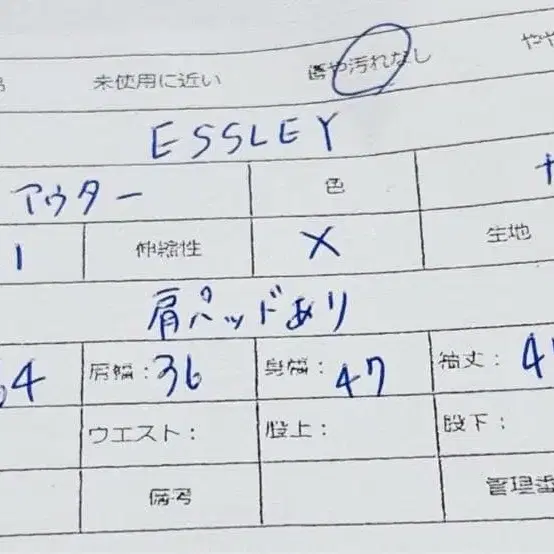 未使用に近い 傷や汚れなし やや
ESSLEY
アウター 色
1 伸縮性 × 生地
肩パッドあり
64 肩幅:36 身幅:47 袖丈:4
ウエスト: 股上: 股下:
備考 管理番